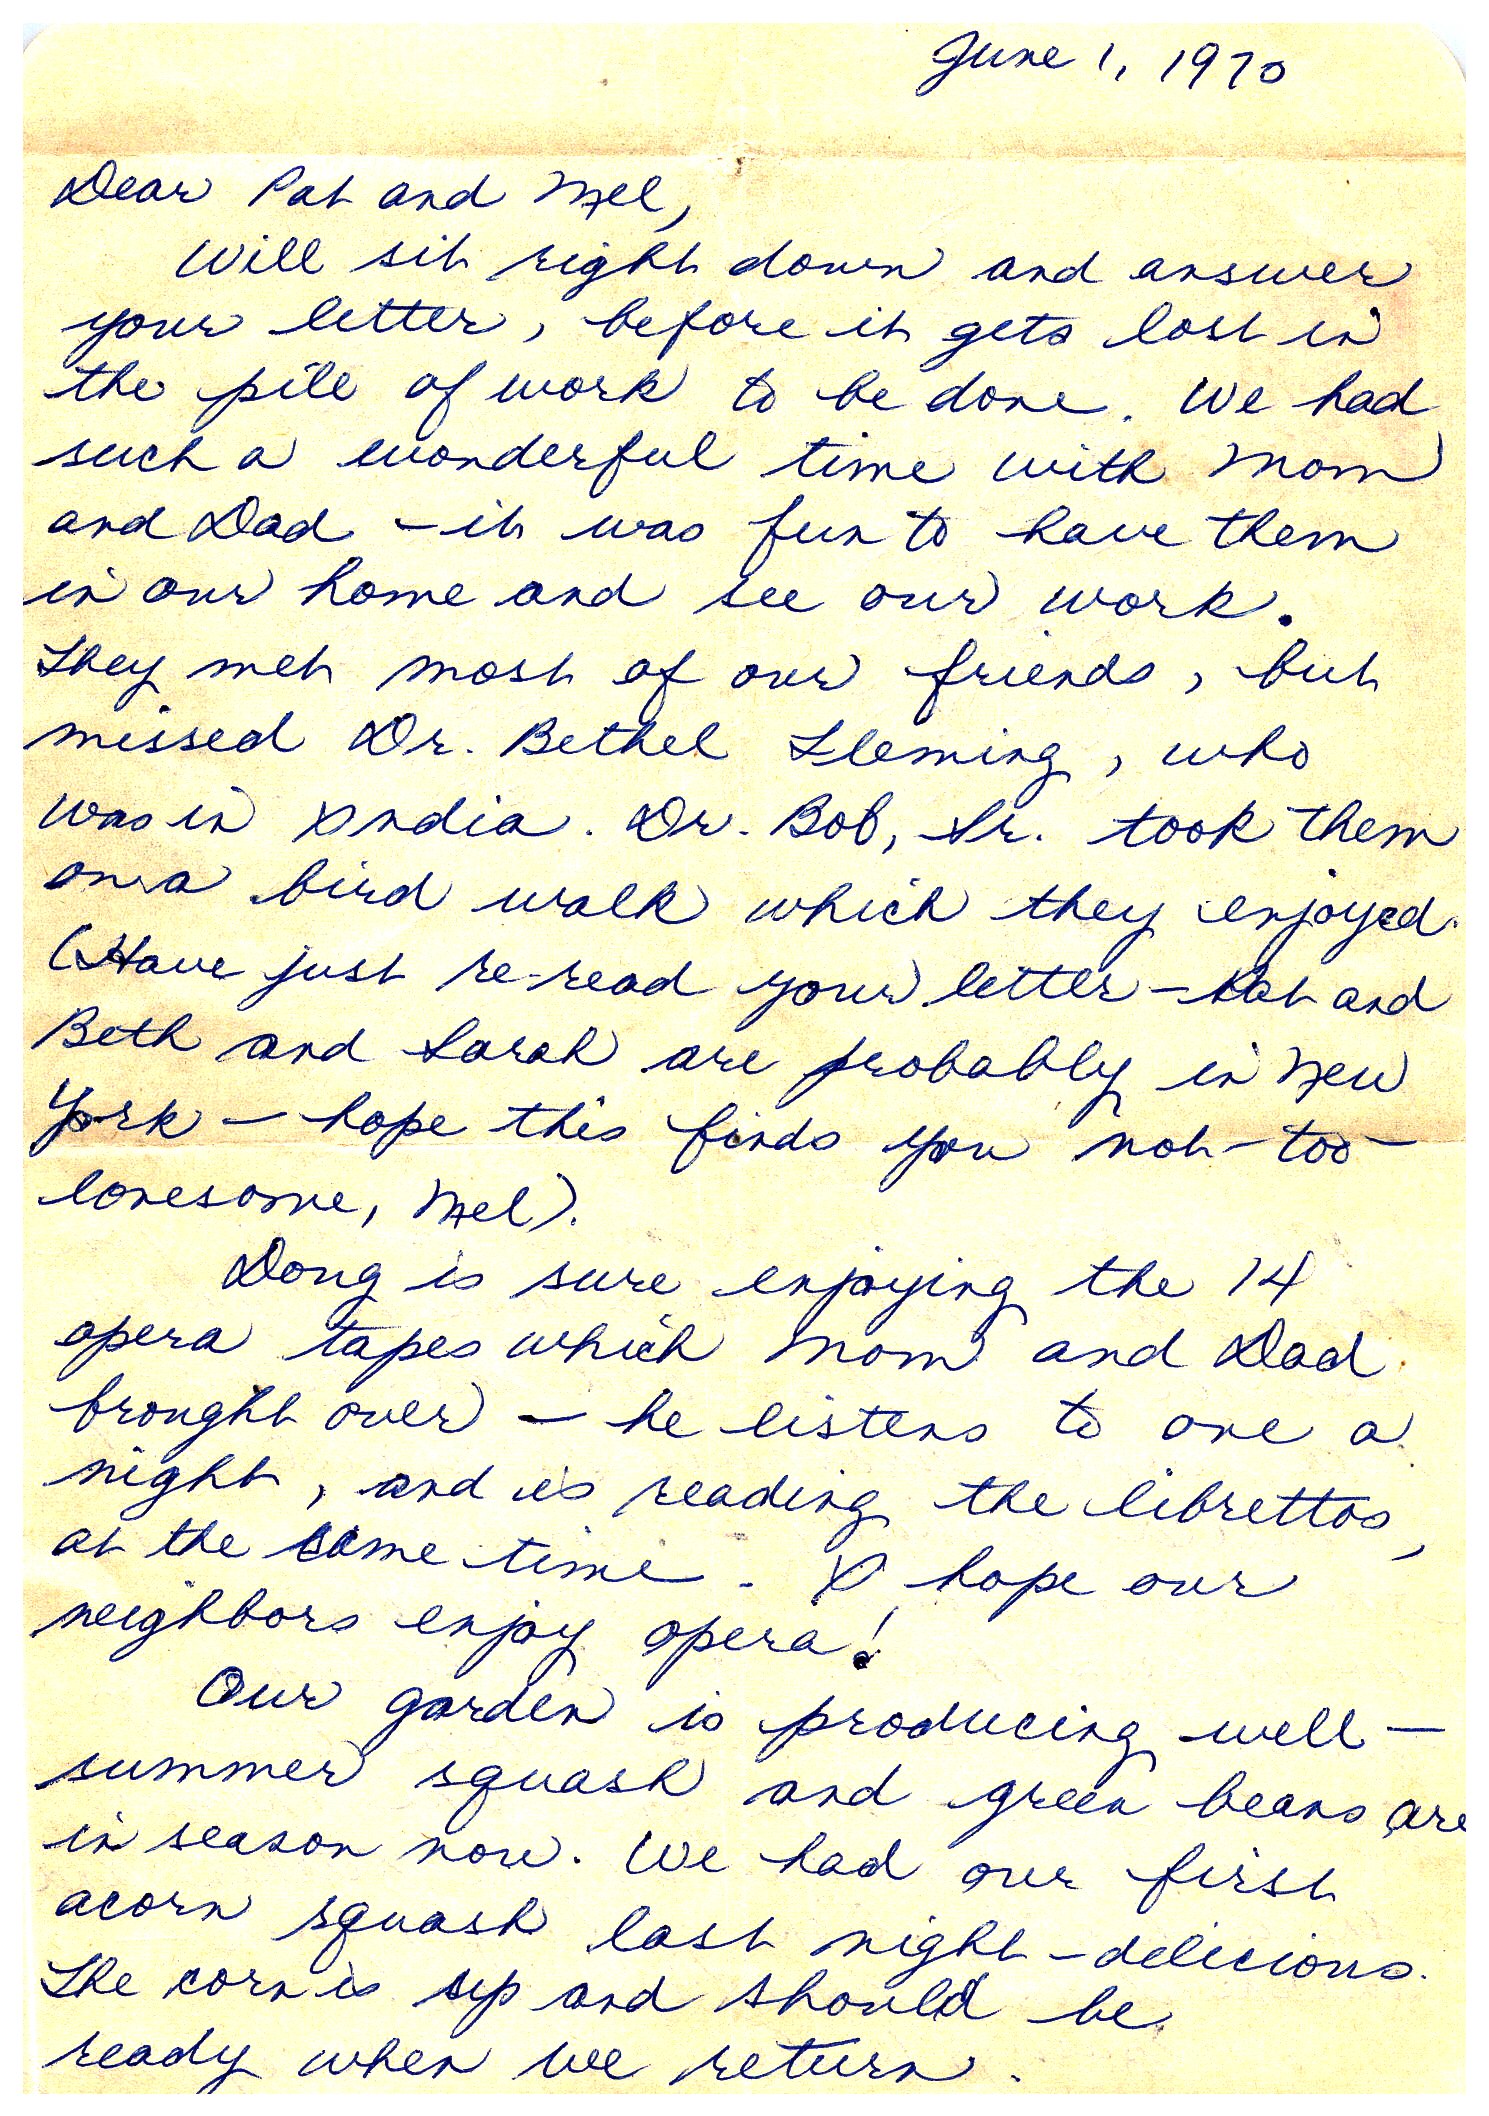 June 1, 1970
Dear Pat and Mel,
Will sit right down and answer
your letter, before it gets lost in
the pile of work to be done. We had
such a wonderful time with Mom
and Dad - it was fun to have them
in our home and see our work.
They met most of our friends, but
missed Dr. Bethel Fleming, who
was in India. Dr. Bob, Sr. took them
on a bird walk which they enjoyed.
(Have just re-read your letter - Pat and
Beth and Sarah are probably in New
York - hope this finds you not-too-
lonesome, Mel).
Doug is sure enjoying the 14
opera tapes which Mom and Dad
brought over - he listens to one a
night, and is reading the librettos,
at the same time. I hope our
neighbors enjoy opera!
Our garden is producing well -
summer squash and green beans are
in season now. We had our first
acorn squash last night - delicious.
The corn is up and should be
ready when we return.